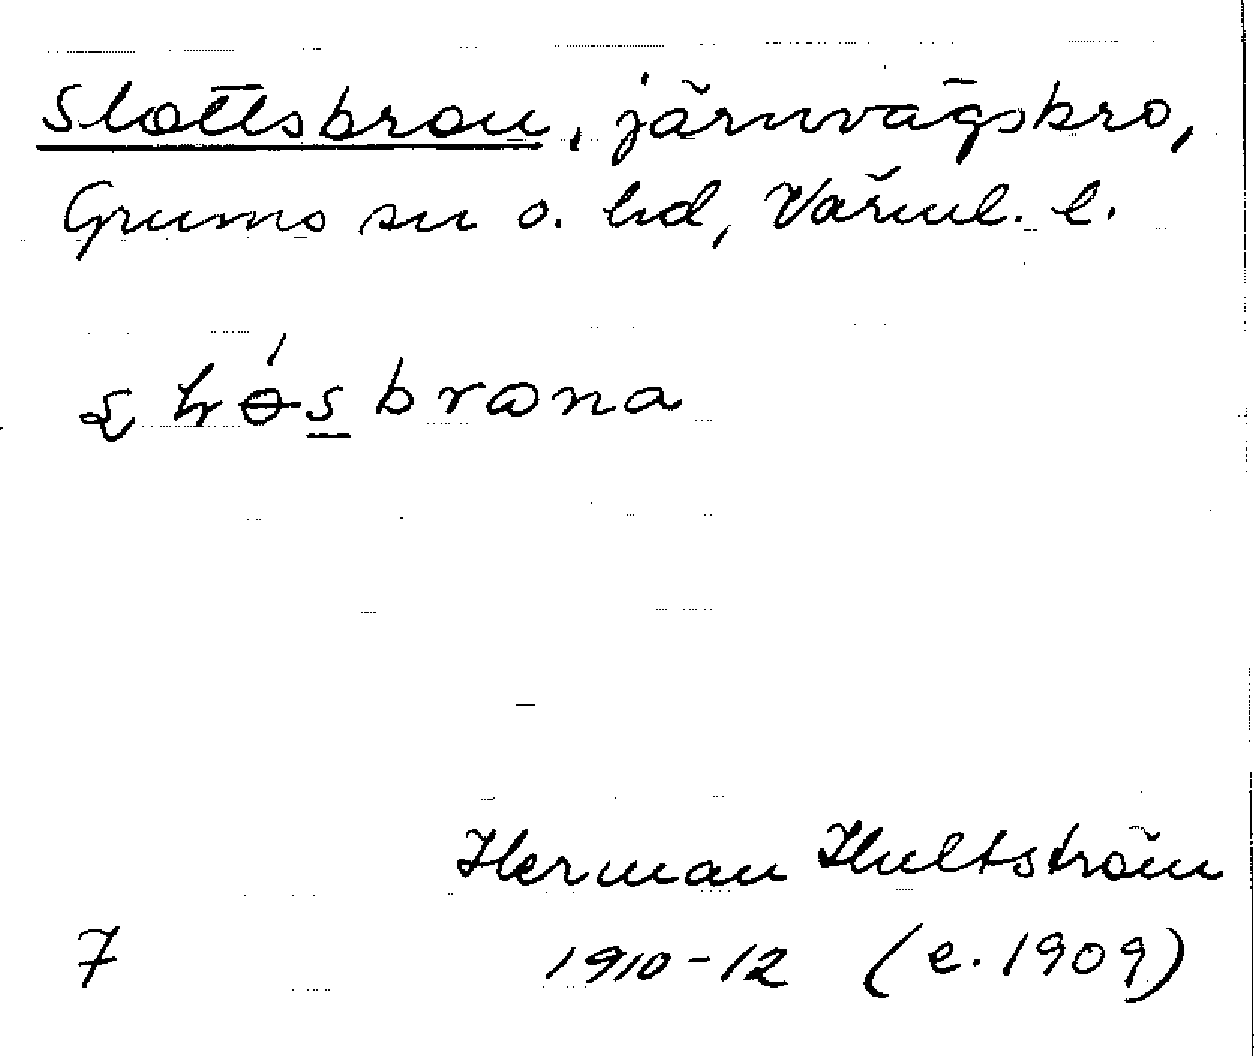 Slottsbron, järnvägsbro,
Grums sn o. hd, Värml. l.
brona
Herman Hultström
7 1910-12 (e. 1909)